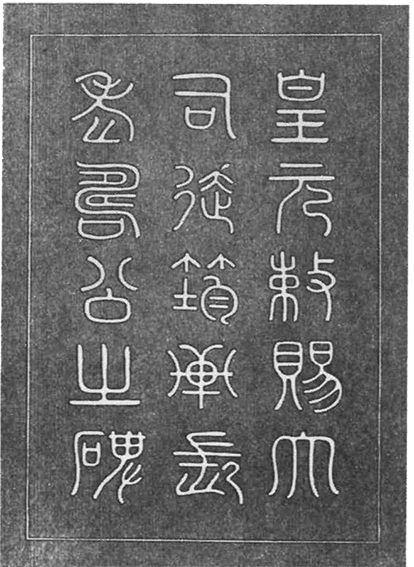 皇元敕賜大
司徒筠軒長
老壽公之碑